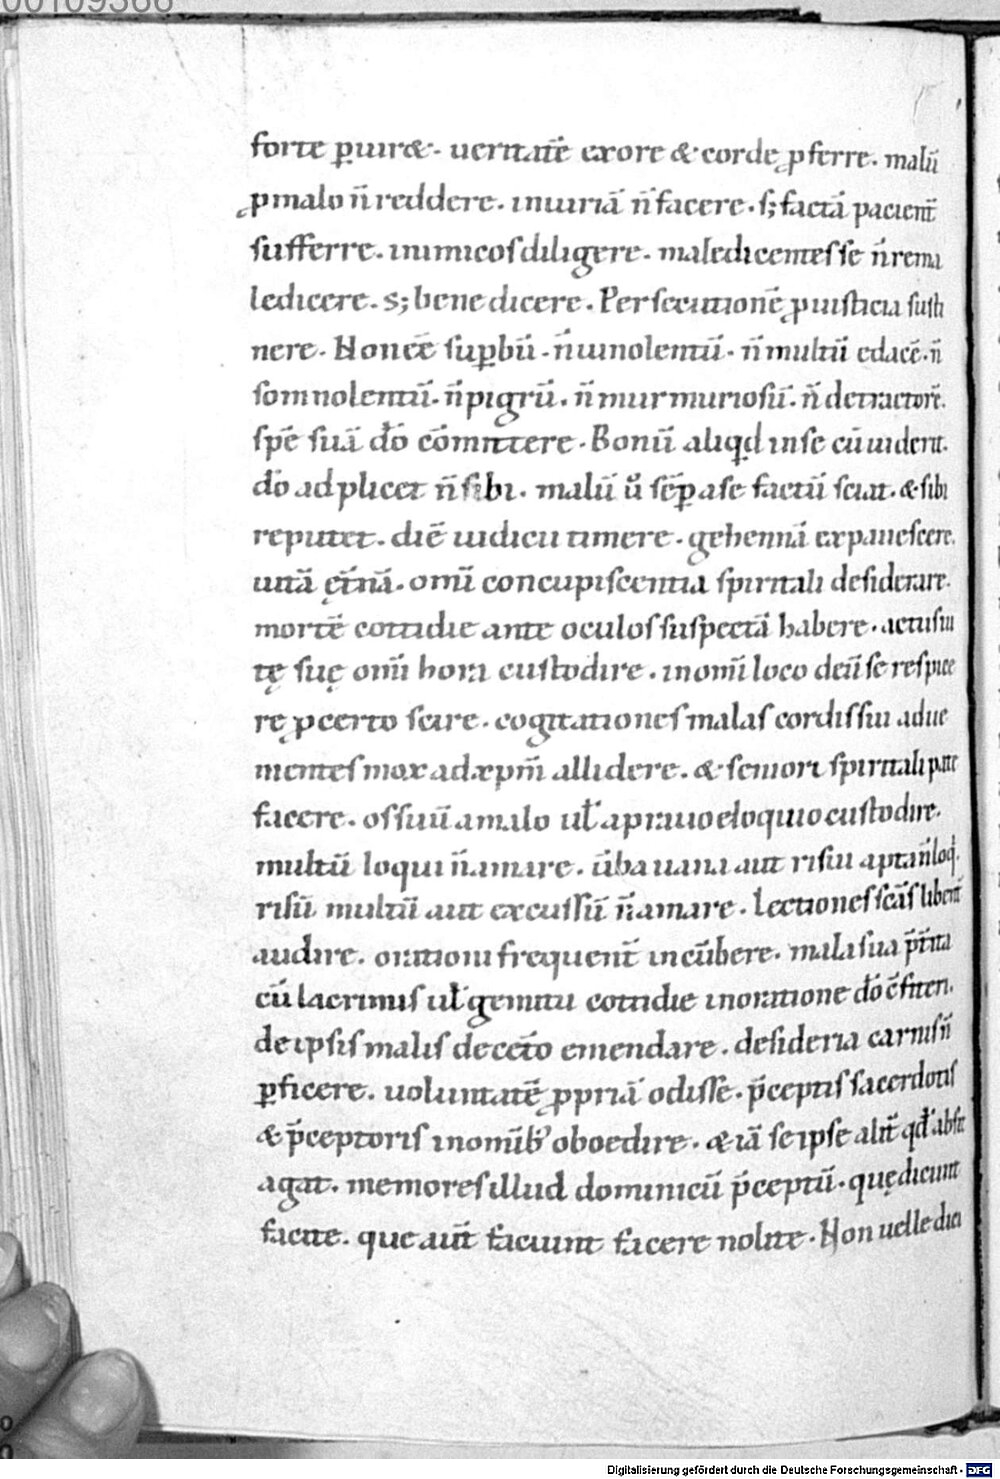 00109366
forte ꝑiuret. ueritatē ex ore & corde ꝓferre. malū
ꝓ malo n̄ reddere. iniuriā n̄ facere. s; factā pacient̄
sufferre. inimicos diligere. maledicentes se n̄ rema
ledicere. s; bene dicere. Persecutionē ꝓ iusticia susti
nere. Non eē suꝑbū. n̄ uinolentū. n̄ multū edacē. n̄
somnolentū. n̄ pigrū. n̄ murmuriosū. n̄ detractorē.
spē suā dō cōmittere. Bonū aliqd in se cū uiderit.
dō adplicet n̄ sibi. malū ů sēꝑ a se factū sciat. & sibi
reputet. diē iudicii timere. gehennā expauescere.
uitā ęt̄nā. omī concupiscentia spiritali desiderare.
mortē cottidie ante oculos suspectā habere. actus ui
tę suę omī hora custodire. in omī loco deū se respice
rę ꝓ certo scire. cogitationes malas cordi suo adue
nientes mox ad xp̄m allidere. & seniori spiritali pate
facere. os suū a malo ul̄ a prauo eloquio custodire.
multū loqui n̄ amare. ūba uana aut risui apta n̄ loq̄.
risū multū aut excussū n̄ amare. Lectiones scās libent̄
audire. orationi frequent̄ incūbere. mala sua p̄t̄ita
cū lacrimis ul̄ gemitu cottidie in oratione dō c̄fiteri.
de ipsis malis de cet̄o emendare. desideria carnis n̄
ꝑficere. uoluntatē ꝓpriā odisse. p̄ceptis sacerdotis
& p̄ceptoris in omīb' oboedire. & iā se ipse alit̄ qđ absit
agat. memores illud dominicū p̄ceptū. quę dicunt
facite. que aūt faciunt facere nolite. Non uelle dici
Digitalisierung gefördert durch die Deutsche Forschungsgemeinschaft - DFG